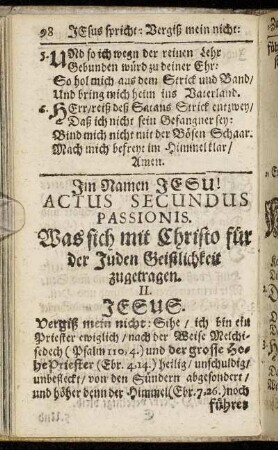 98 JEsus spricht: Vergiß mein nicht:
5. UNd so ich wegn der reinen Lehr
Gebunden würd zu deiner Ehr:
So hol mich aus dem Strick und Band/
Und bring mich heim ins Vaterland.
6. HErr/reiß deß Satans Strick entzwey/
Daß ich nicht sein Gefangner sey:
Bind mich nicht mit der Bösen Schaar.
Mach mich befreyt im Himmel klar/
Amen.
Im Namen JESU!
ACTUS SECUNDUS
PASSIONIS.
Was sich mit Christo für
der Juden Geistlichkeit
zugetragen.
II.
JESUS.
Vergiß mein nicht: Sihe/ ich bin ein
Priester ewiglich/ nach der Weise Melchi-
sedech (Psalm 110. 4.) und der grosse Ho-
he Priester (Ebr. 4. 14.) heilig/ unschuldig/
unbefleckt/ von den Sündern abgesondert/
und höher denn der Himmel (Ebr. 7. 26.) noch
führet